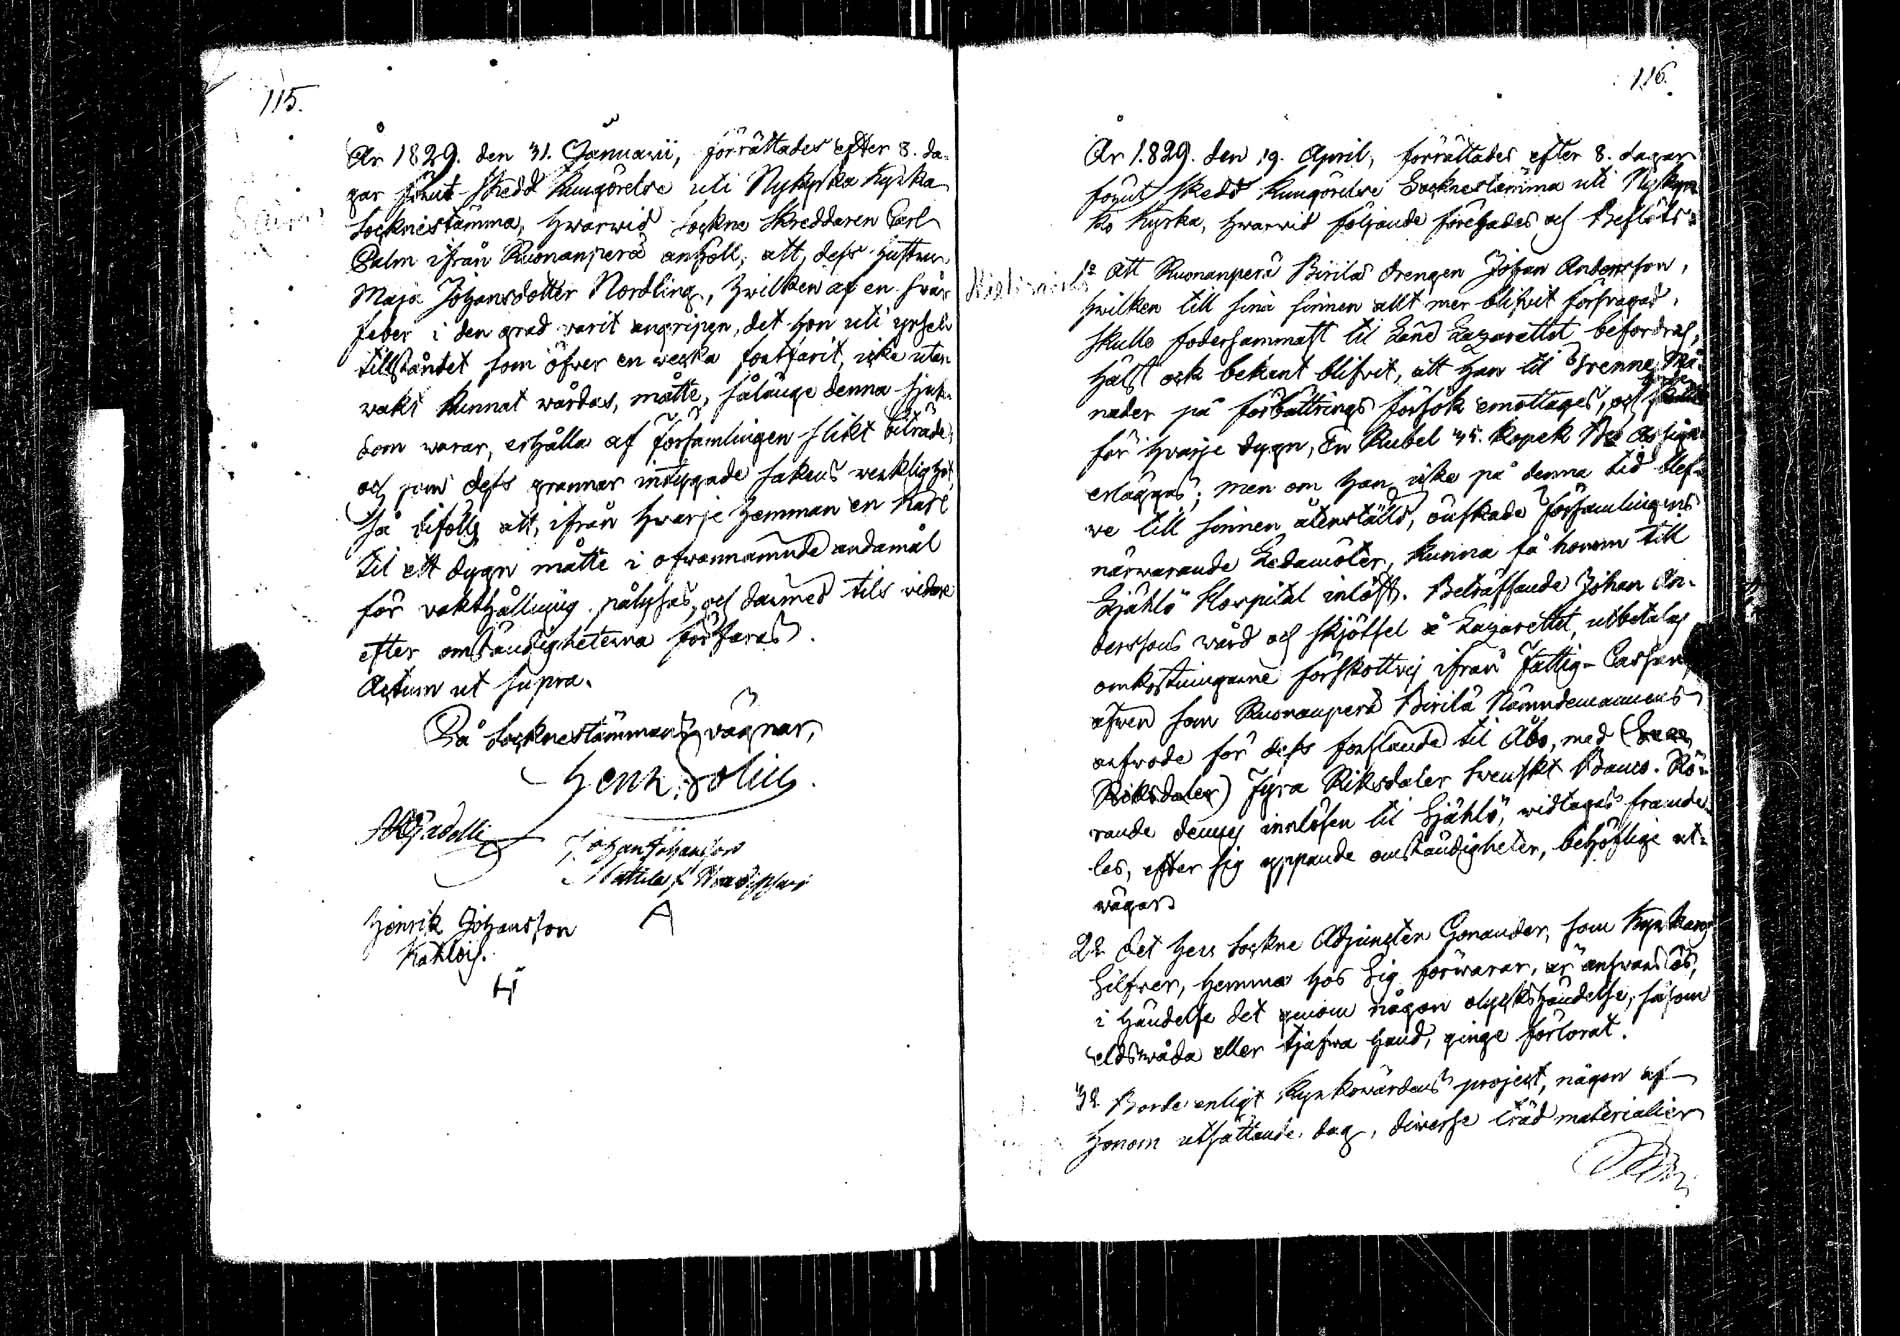 115.
År 1829. den 31. Januarii, förrättades efter 8. da-
gar förut skedd kungörelse uti Nykyrko Kyrka
Socknestämma, hwarwid Sockne Skreddaren Carl
Palm ifrån Ruonanperä anhöll, att, dess hustru
Maja Johansdotter Nordling, hwilken af en svår
feber i den grad warit angripen, det hon uti yrsel
tillståndet som öfver en wecka fortfarit, icke utan
wakt kunnat wårdas, måtte, sålänge denna sjuk-
dom warar, erhålla af Församlingen slikt biträde,
och som dess grannar intygade sakens werklighet,
så biföllt att, ifrån hwarje Hemman en Karl
til ett dygn måtte i ofwannämnde ändamål
för wakthållning pålysas, och därmed tils vidare
efter omständigheterna förfaras.
Actum ut supra.
På Socknestämmans vägnar,
Henr:
Johan Johansson
Henrik Johansson
116.
År 1829. den 19. April, förrättades efter 8. dagar
förut skedd kungörelse Socknestämma uti Nykyr-
ko Kyrka, hwarwid följande förehades och Beslöts:
1º Att Ruonanperä Birilas drengen Johan Andersson,
hwilken till sina sinnen allt mer blifvit försvagad,
skulle fodersammast til Länd Lazarettet befordras,
hälst ock bekant blifvit, att han til Trenne Må-
nader på förbättrings försök emottages, och
för hwarje dygn, En Rubel 35. kopek Bco Assign:
erlägges; men om han icke på denna tid blef-
ve till sinnen återställd, önskade Församlingens
närwarande Ledamöter, kunna få honom till
Själö Hospital inlöst. Beträffande Johan An-
derssons wård och skjötsel å Lazarettet, utbetalas
omkostningarne förskottvis ifrån Fattig-Cassan,
äfwen som Ruonanperä Birilä Nämndemannens
arfvode för dess forslande til Åbo, med
Riksdaler) Fyra Riksdaler Svenskt Banco. Rö-
rande dennes innlösen til Själö, widtages framde-
les, efter sig yppande omständigheter, behöflige ut-
wägar.
2º Det Herr Sockne Adjuncten Gonander, som Kyrkans
Silfver, hemma hos Sig förwarar, är answarslös,
i händelse det genom någon olyckshändelse, såsom
eldswåda eller tjufwa hand, ginge förlorat.
3º Borde enligt Kyrkowärdens project, någon af
honom utsättande dag, diverse träd materialier